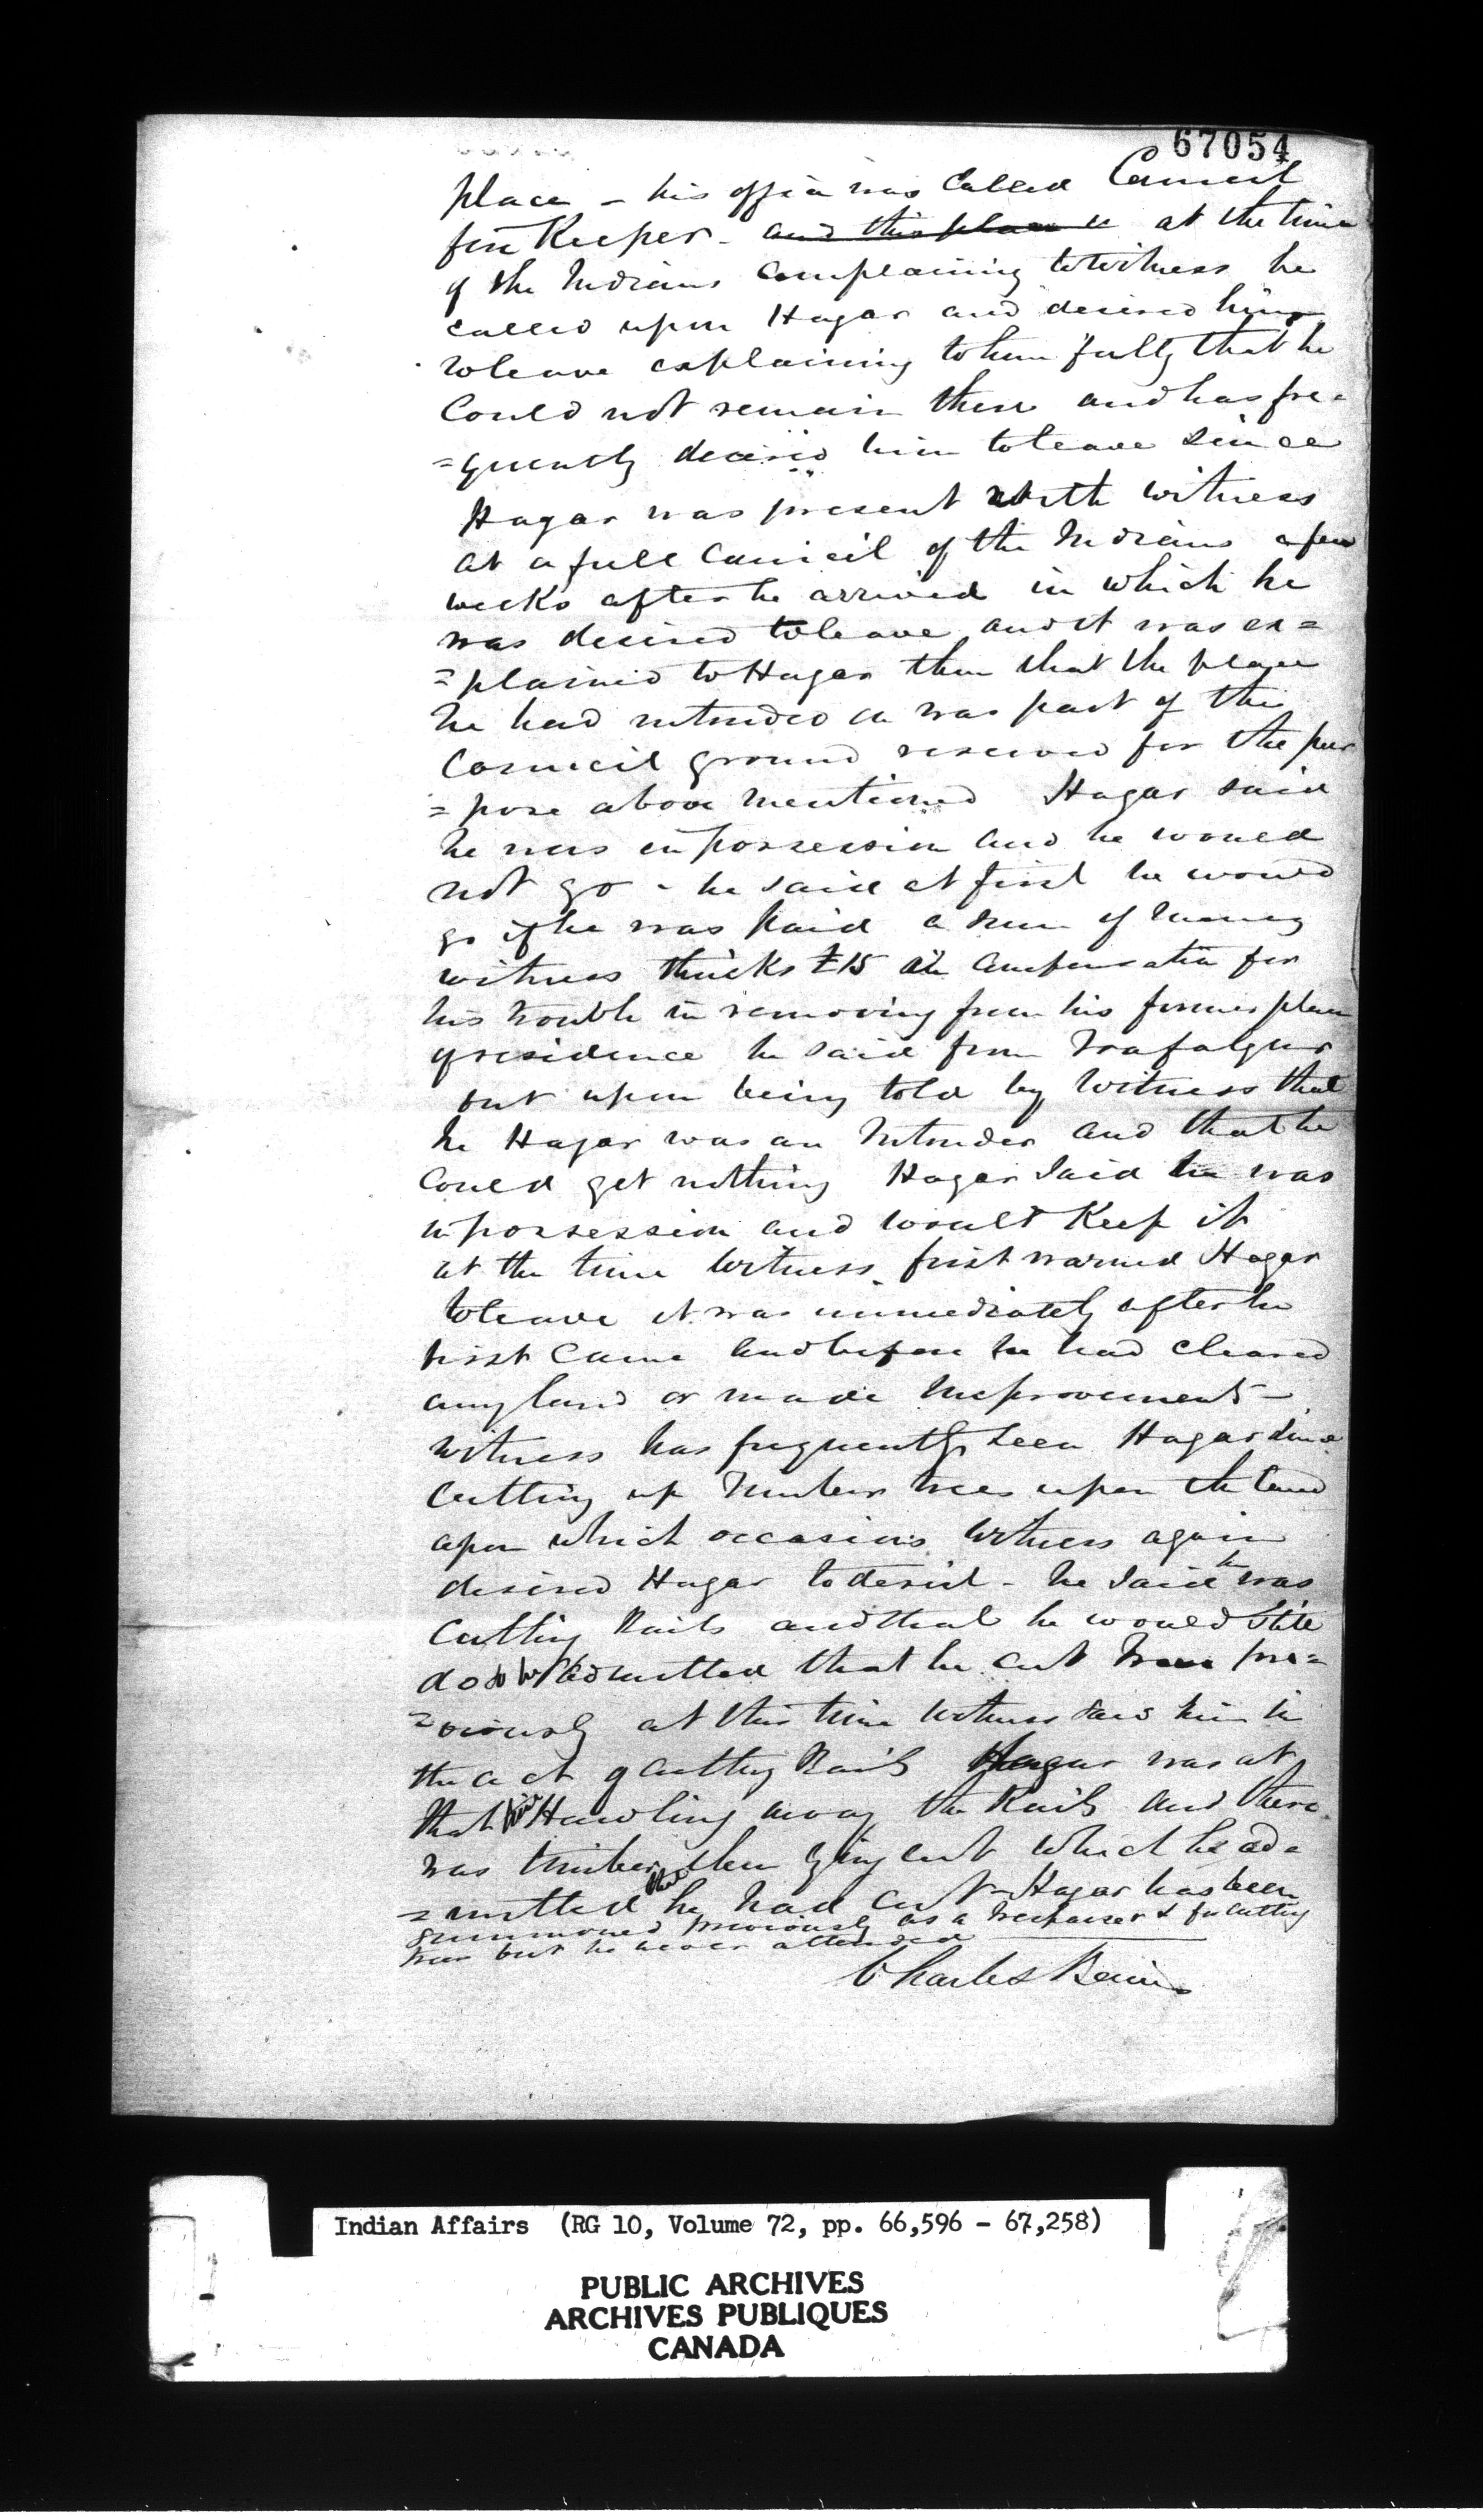 67054
place - his office was Called Council
fire Keeper - and this place is at the time
of the Indians Complaining to witness he
called upon Hagar and desired him
to leave explaining to him fully that he
Could not remain there and has fre=
=quently desired him to leave since
Hagar was present with witness
at a full Council of the Indians a few
weeks after he arrived in which he
was desired to leave and it was ex=
=plained to Hagar then that the place
he had intruded on was part of the
Council ground reserved for the pur
=pose above mentioned Hagar said
he was in possession and he would
not go - he said at first he would
go if he was paid a sum of money
witness thinks £15 in Compensation for
his trouble in removing from his former place
of residence he said from Trafalgar
but upon being told by Witness that
he Hagar was an Intruder and that he
Could get nothing Hagar said he was
in possession and would Keep it
at the time Witness first warned Hagar
to leave it was immediately after he
first Came and before he had cleared
any land or made Improvements -
Witness has frequently seen Hagar since
Cutting up timber trees upon the land
upon which occasions Witness again
desired Hagar to desist - he said he was
Cutting Rails and that he would still
do so he admitted that he cut trees pre=
=viously at this time Witness saw him in
the act of cutting Rails Hagar was at
that time Hawling away the Rails and there
was timber then lying cut which he ad=
=mitted that he had cut - Hagar has been
summoned previously as a trespasser & for cutting
trees but he never attended
Charles Bain
Indian Affairs (RG 10, Volume 72, pp. 66,596 - 67,258)
PUBLIC ARCHIVES
ARCHIVES PUBLIQUES
CANADA